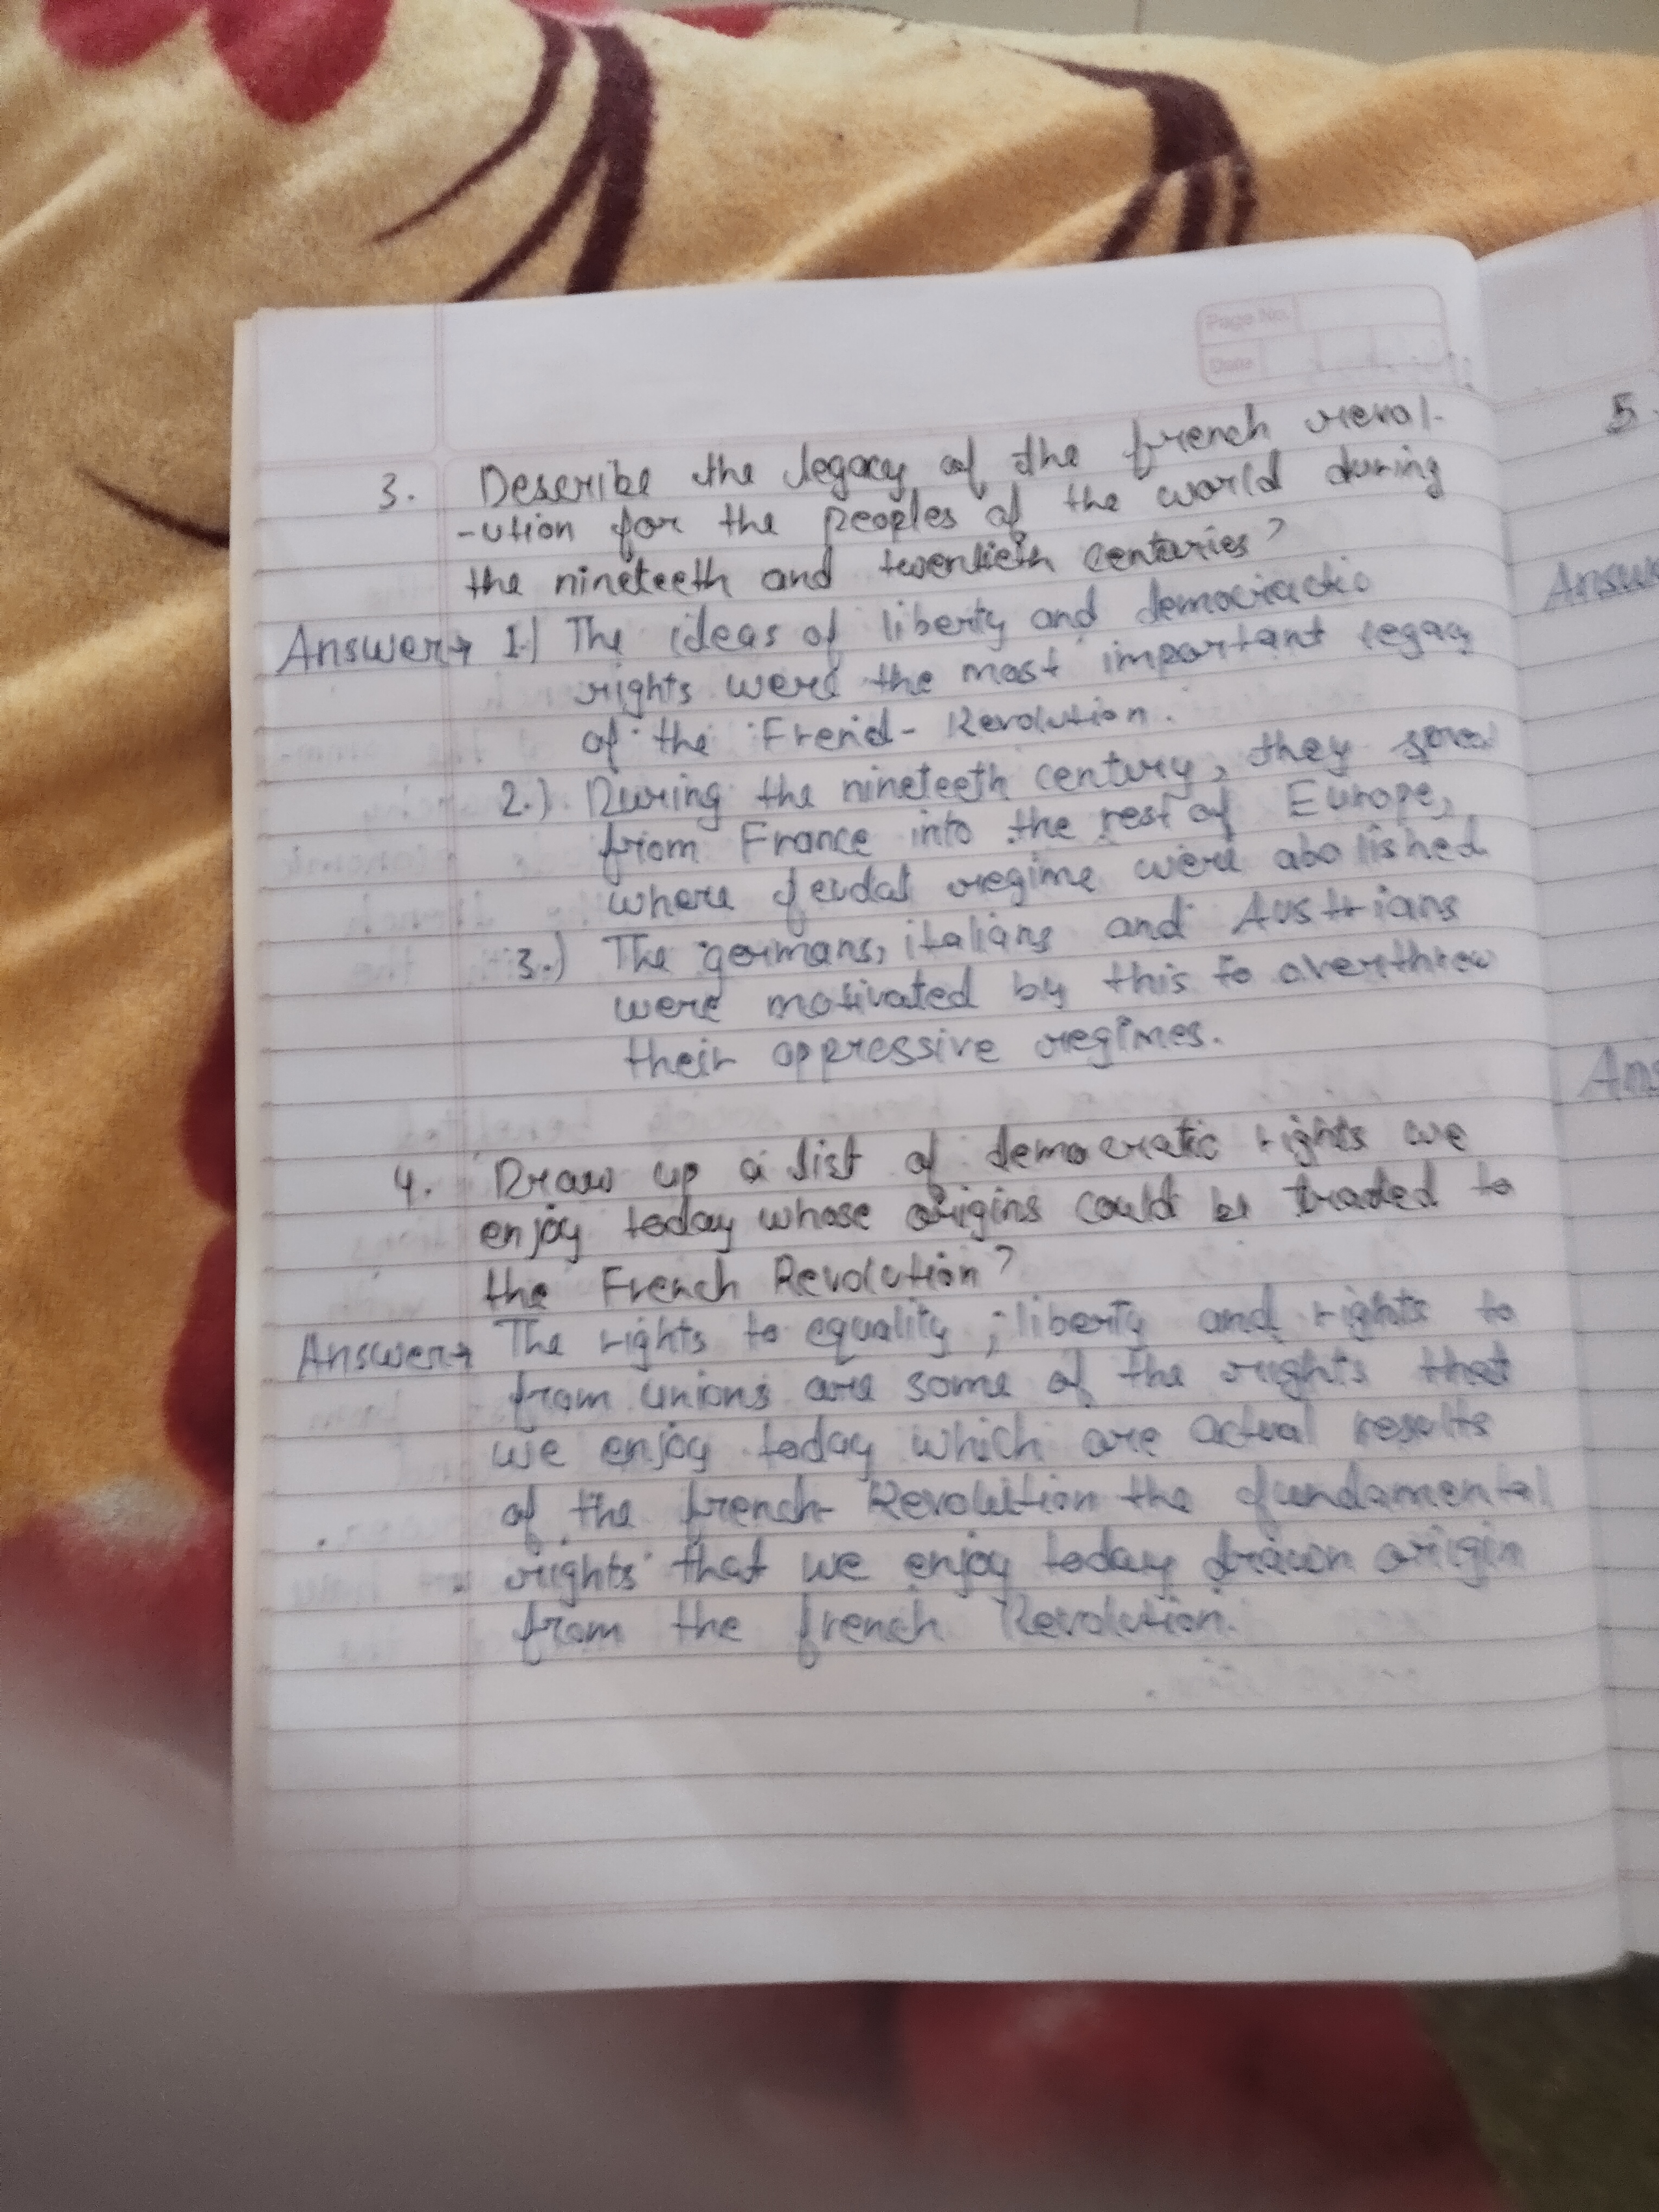 Page No.
Date
3. Describe the legacy of the french revol-
-ution for the peoples of the world during
the nineteeth and twentieth centuries?
Answer→ 1.) The ideas of liberty and democractic
rights were the most important legacy
of the Frend- Revolution.
2.) During the nineteeth century, they spread
from France into the rest of Europe,
where feudal regime were abolished
3.) The germans, italians and Austrians
were motivated by this to overthrew
their oppressive regimes.
4. Draw up a list of democratic rights we
enjoy today whose origins could be traded to
the French Revolution?
Answer→ The rights to equality, liberty and rights to
from unions are some of the rights that
we enjoy today which are actual results
of the french Revolution the fundamental
rights that we enjoy today drawn origin
from the french Revolution.
5.
Answ
Ans